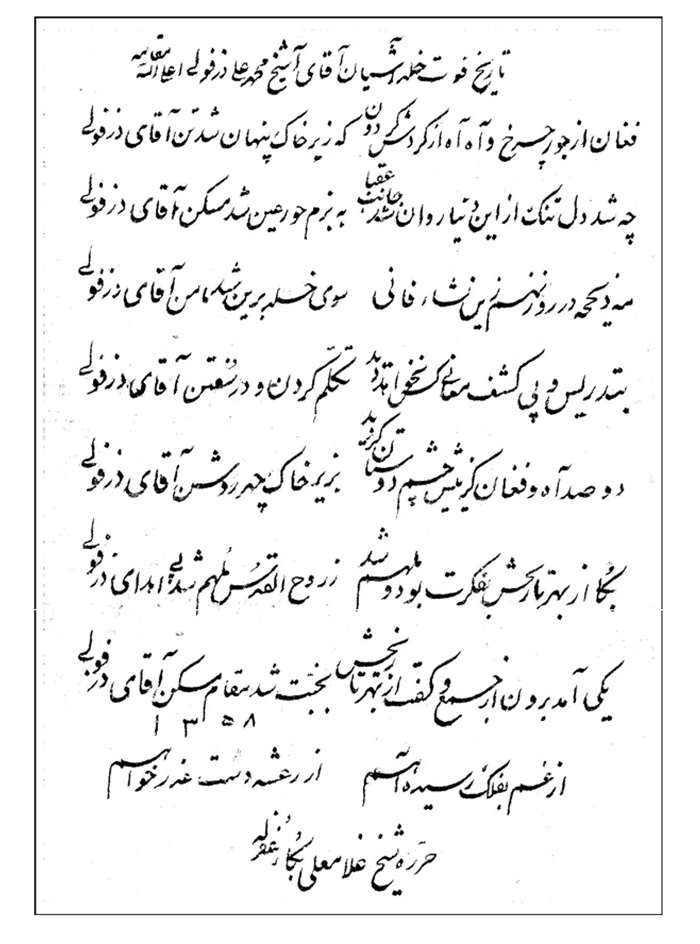 تاریخ فوت خلد آشیان آقای آشیخ محمد علی دزفولی اعلی الله مقامه
فغان از جور چرخ و آه آه از گردش گردون که زیر خاک پنهان شد تن آقای دزفولی
چه شد دل تنگ از این دنیا روان شد جانب عقبا به بزم حور عین شد مسکن آقای دزفولی
مه ذیحجه در روز نهم زین نشاء فانی سوی خلد برین شد مامن آقای دزفولی
بتدریس و پی کشف معانی کس نخواهد دید تکلّم کردن و در سُفتن آقای دزفولی
دو صد آه و فغان کز پیش چشم دوستان گردید بزیر خاک چهر روشن آقای دزفولی
بکا از بهر تاریخش بفکرت بود و ملهم شد ز روح القدس مُلهم شد پی اهدای دزفولی
یکی آمد برون از جمع و گفت از بهر تاریخش بجنّت شد مقام مسکن آقای دزفولی
۱۳۵۸
از غم بفلک رسیده آهم از رعشه دست عذر خواهم
حرره شیخ غلامعلی بکا غفرله